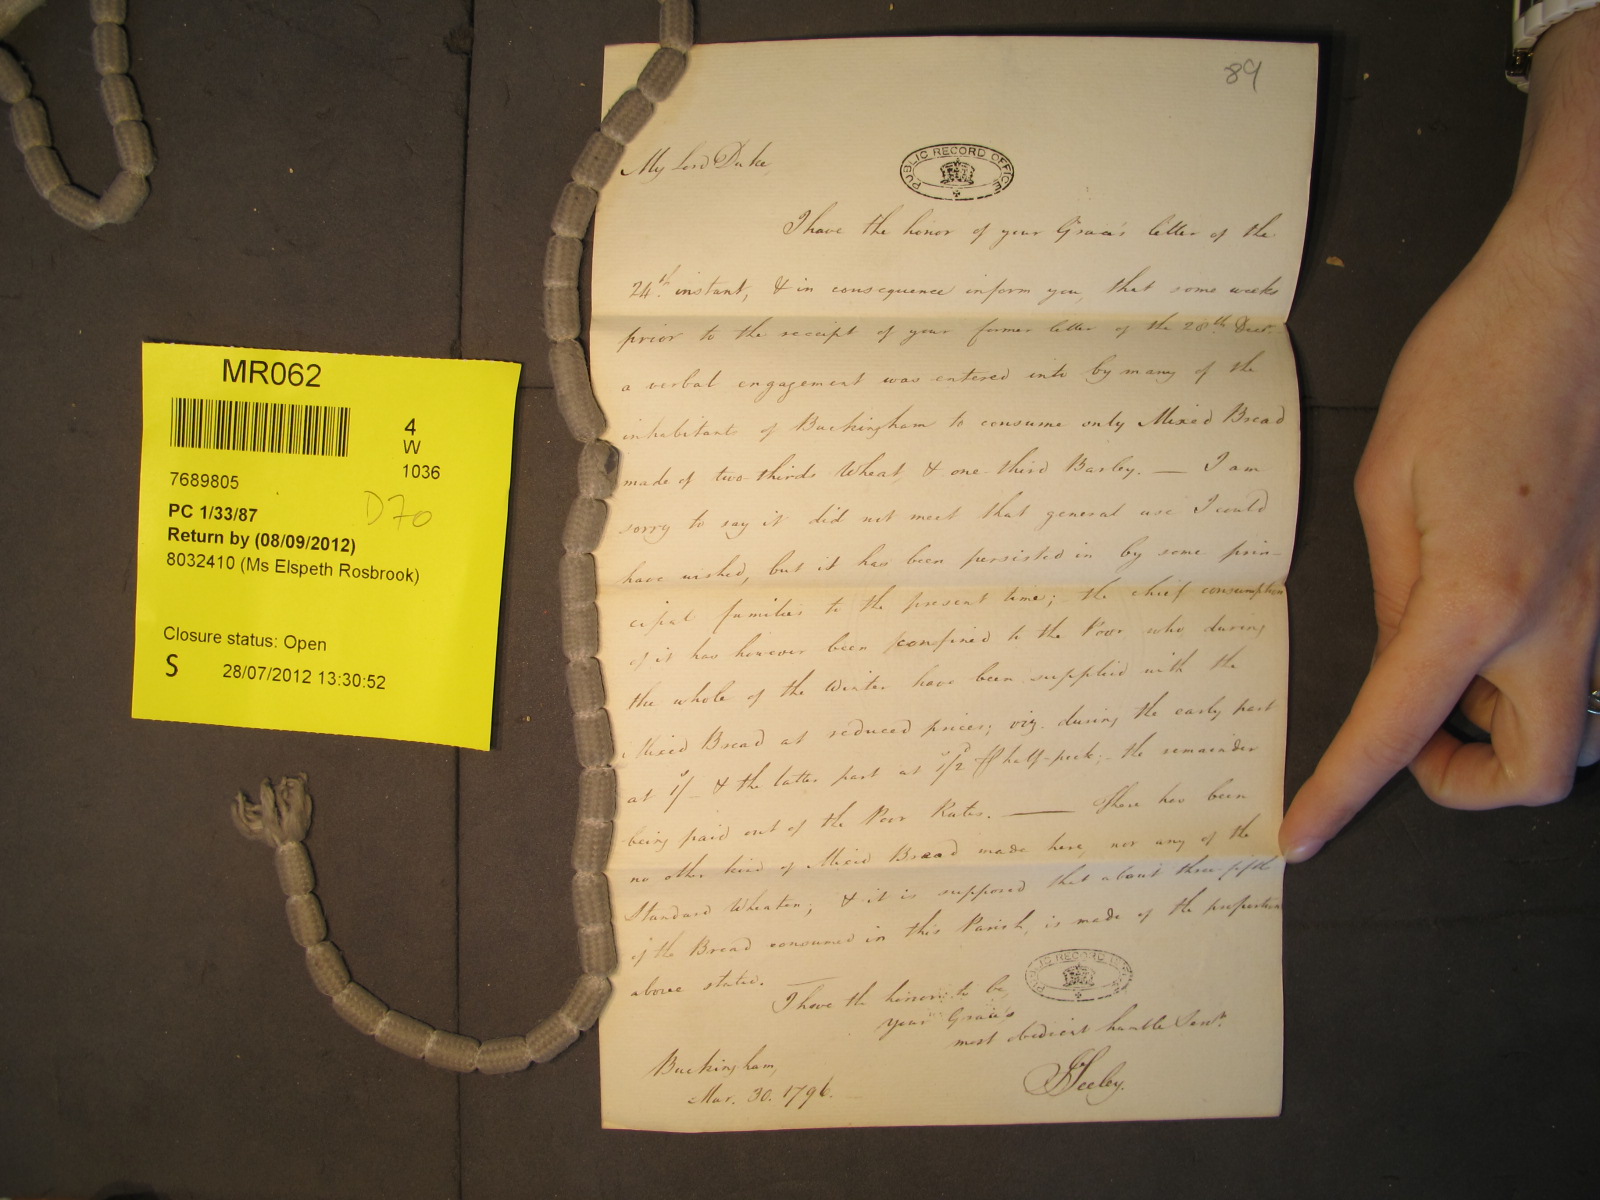 89
My Lord Duke,
PUBLIC RECORD OFFICE
I have the honor of your Grace's letter of the
24th. instant, & in consequence inform you, that some weeks
prior to the receipt of your former letter of the 28th Decr.
a verbal engagement was entered into by many of the
inhabitants of Buckingham to consume only Mixed Bread
made of two-thirds Wheat, & one-third Barley. — I am
sorry to say it did not meet that general use I could
have wished, but it has been persisted in by some prin-
cipal families to the present time; the chief consumption
of it has however been confined to the Poor who, during
the whole of the Winter have been supplied with the
Mixed Bread at reduced prices; viz. during the early part
at 1s/- & the latter part at 1s/2d half-peck; the remainder
being paid out of the Poor Rates. — There has been
no other kind of Mixed Bread made here, nor any of the
Standard Wheaten; & it is supposed that about three-fifths
of the Bread consumed in this Parish, is made of the proportions
above stated.
I have the honor to be,
your Grace's
most obedient humble Servt.
PUBLIC RECORD OFFICE
JSeeley.
Buckingham,
Mar. 30. 1796.
MR062
4
W
1036
7689805
D70
PC 1/33/87
Return by (08/09/2012)
8032410 (Ms Elspeth Rosbrook)
Closure status: Open
S 28/07/2012 13:30:52